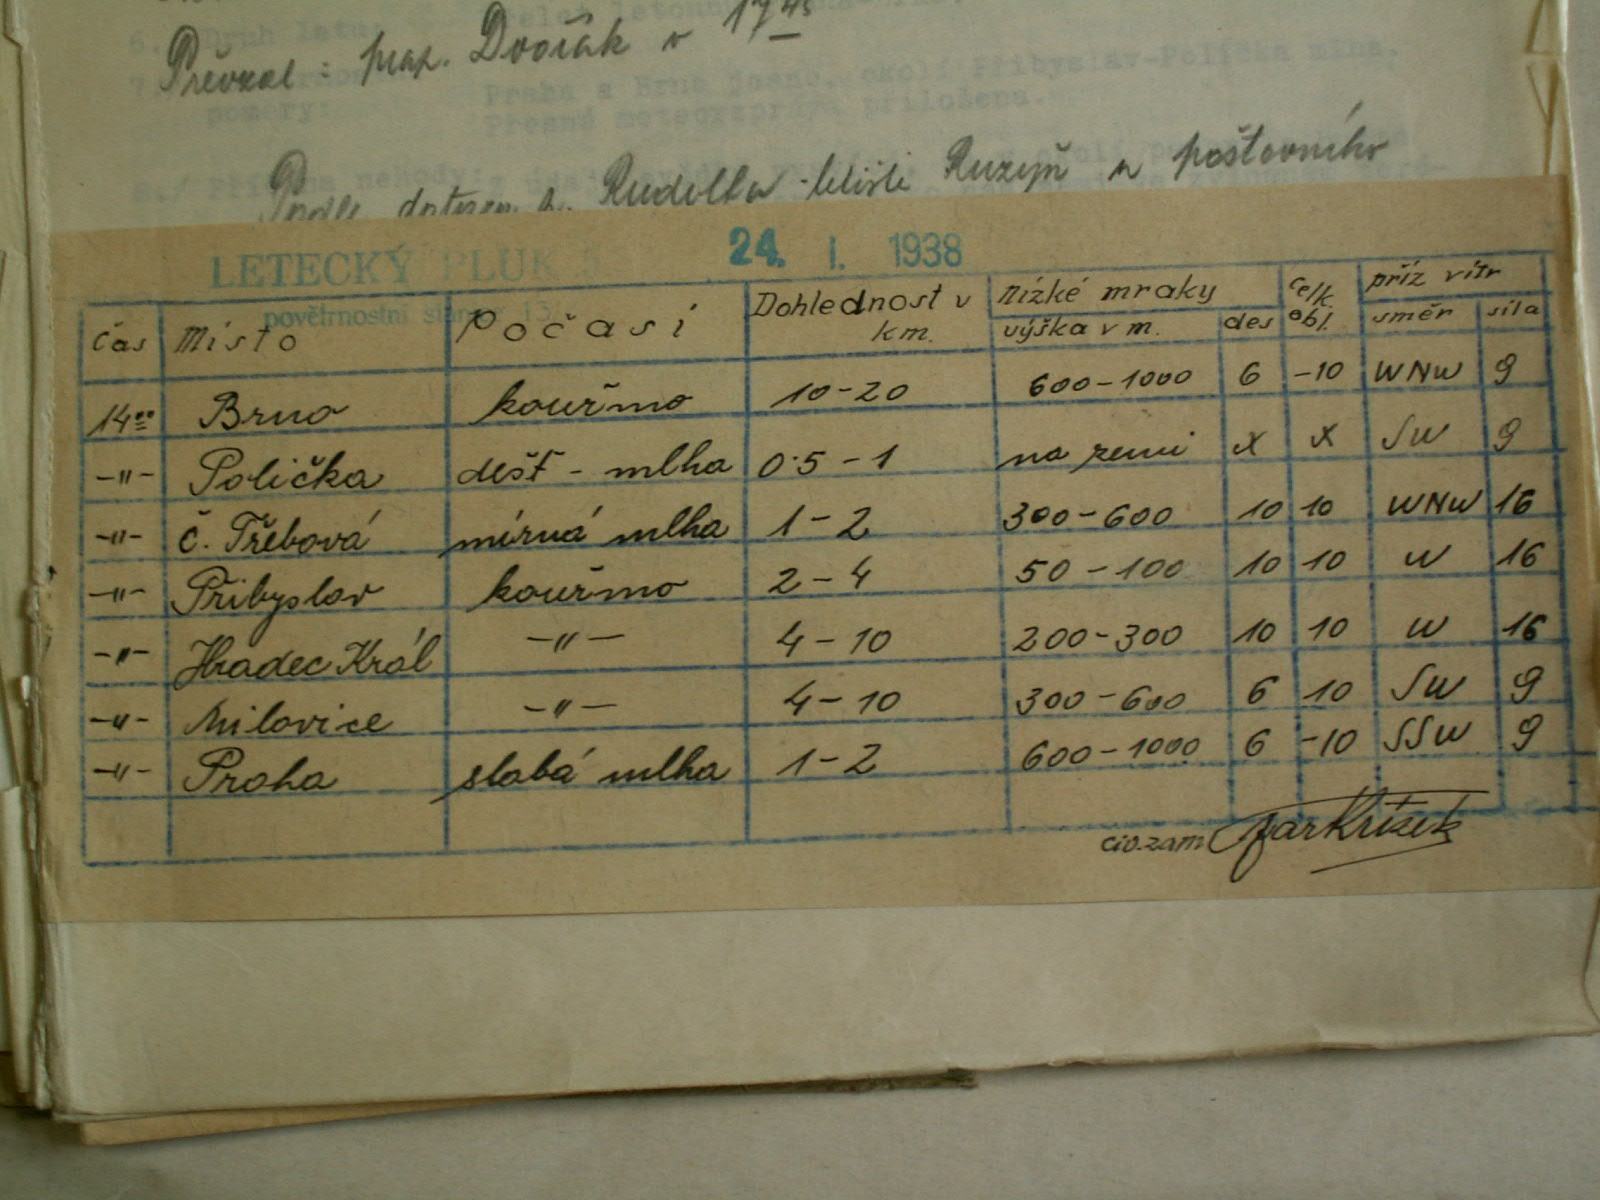 Převzal: prap. Dvořák v 17 45
Praha a Brno jasno, okolí Přibyslav-Polička mlha.
poměry: Přesná meteozpráva přiložena.
Podle dotazem p. Rudolfa letiště Ruzyň u poštovního
LETECKÝ PLUK 5 24. I. 1938
povětrnostní stanice
Čas Místo Počasí Dohlednost v km. Nízké mraky celk. obl. příz vítr
výška v m. des směr síla
14 00 Brno kouřmo 10-20 600-1000 6 -10 WNW 9
-"- Polička déšť - mlha 0.5-1 na zemi x x SW 9
-"- Č. Třebová mírná mlha 1-2 300-600 10 10 WNW 16
-"- Přibyslav kouřmo 2-4 50-100 10 10 W 16
-"- Hradec Král -"- 4-10 200-300 10 10 W 16
-"- Milovice -"- 4-10 300-600 6 10 SW 9
-"- Praha slabá mlha 1-2 600-1000 6 -10 SSW 9
civ. zam.